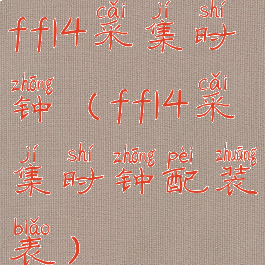 cǎi jí shí
ff14采集时
zhōng cǎi
钟（ff14采
jí shí zhōng pèi zhuāng
集时钟配装
biǎo
表）